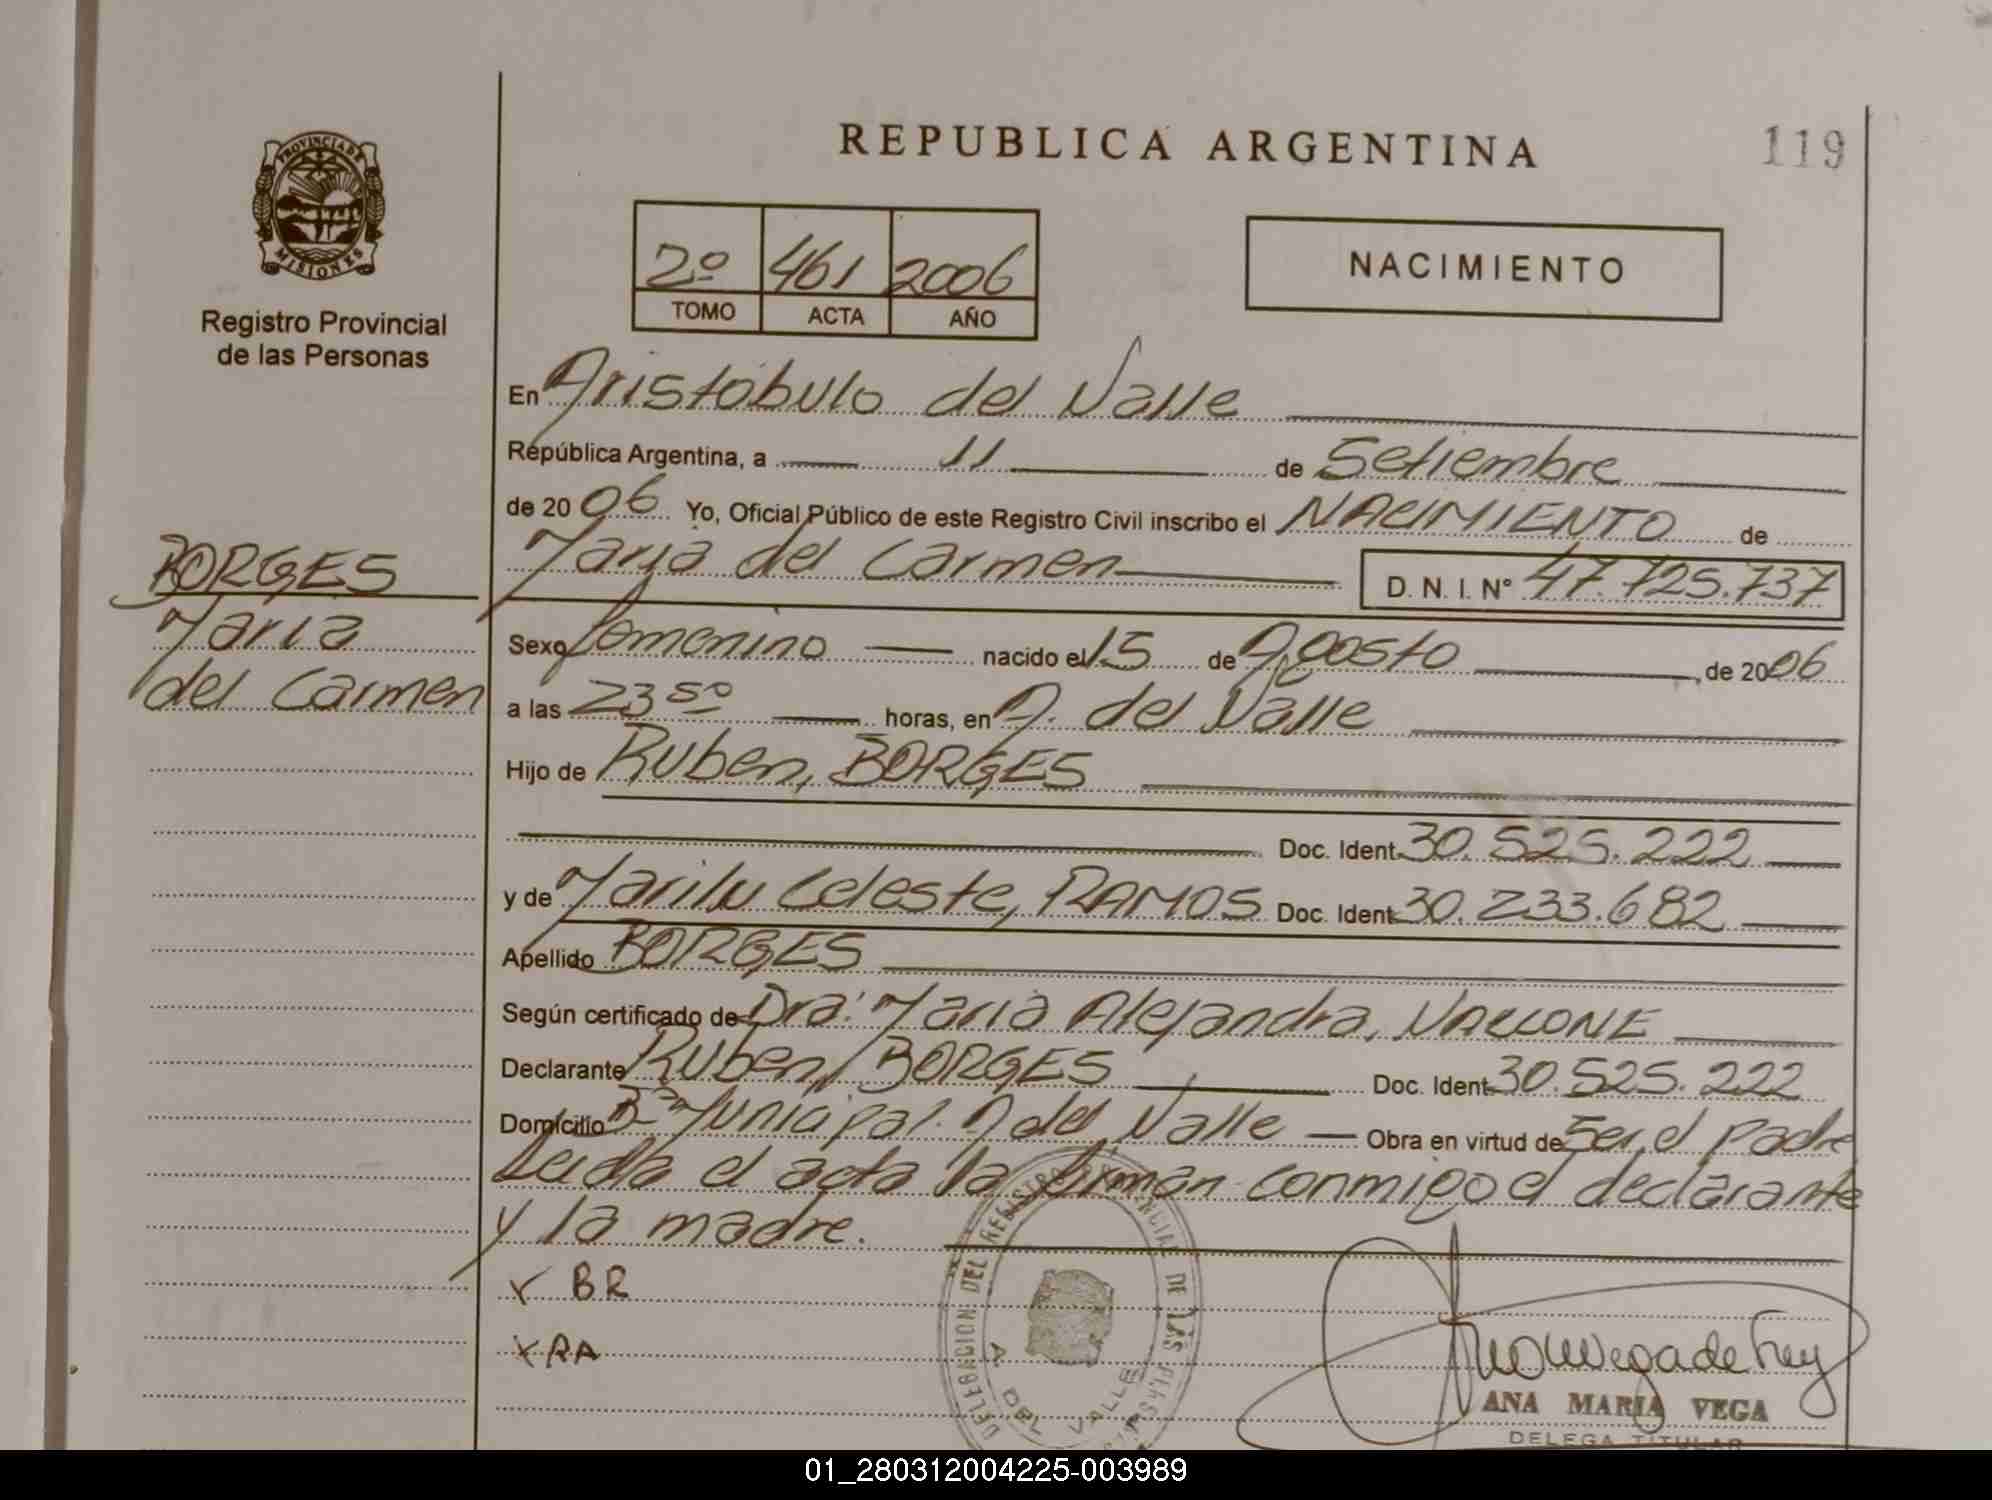 REPUBLICA ARGENTINA
119
PROVINCIA DE
MISIONES
Registro Provincial
de las Personas
2º 461 2006
TOMO ACTA AÑO
NACIMIENTO
En Aristóbulo del Valle
República Argentina, a 11 de Setiembre
de 2006 Yo, Oficial Público de este Registro Civil inscribo el NACIMIENTO de
María del Carmen D. N. I. Nº 47.725.737
BORGES
María
del Carmen
Sexo femenino nacido el 15 de Agosto, de 2006
a las 23 50 horas, en A. del Valle
Hijo de Ruben, BORGES
Doc. Ident. 30.525.222
y de Marilu Celeste, RAMOS Doc. Ident. 30.233.682
Apellido BORGES
Según certificado de Dra: María Alejandra,
Declarante Ruben, BORGES Doc. Ident. 30.525.222
Domicilio Bº Municipal. A del Valle — Obra en virtud de Ser el padre
Leida el acta la firman conmigo el declarante
y la madre.
x BR
x RA
DELEGACION DEL REGISTRO PROVINCIAL DE LAS PERSONAS
A. DEL VALLE
Ana M Vega de Frey
ANA MARIA VEGA
DELEGA TITULAR
01_280312004225-003989